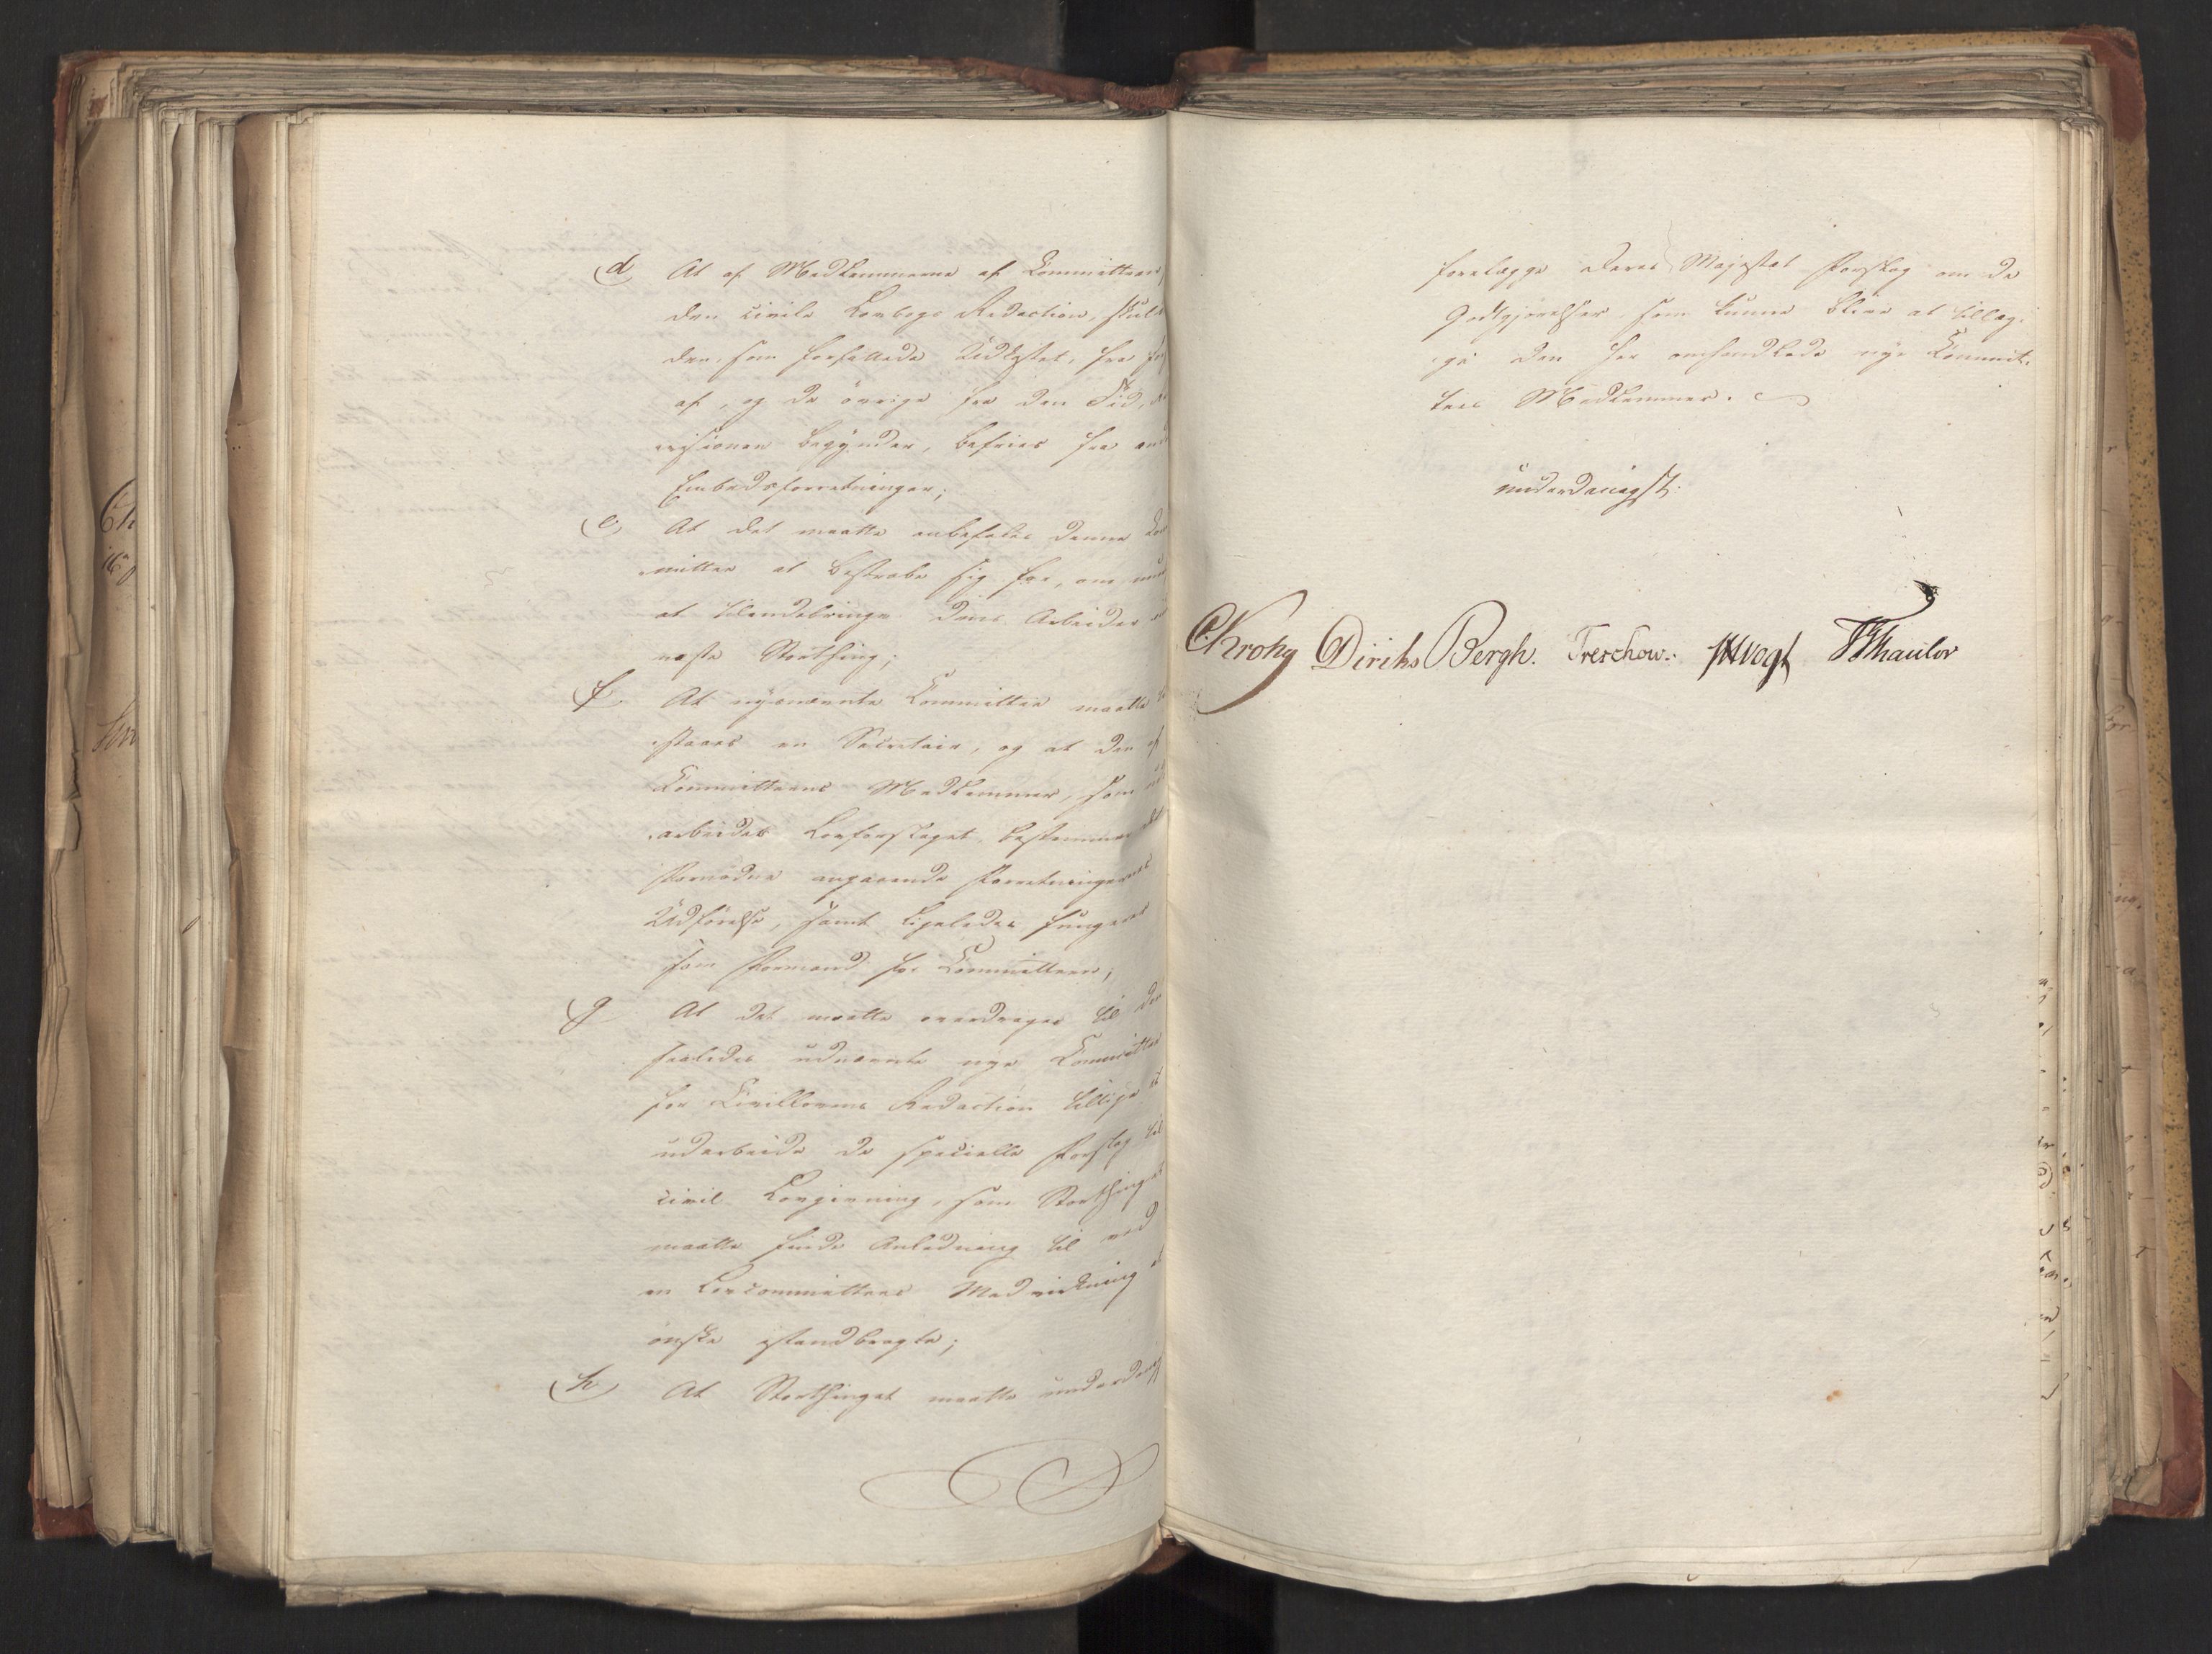 d At af Medlemmerne af Committeen
den civile Lovbogs Redaction, skul
den, som forfattede Udkastet, fra
af, og de övrige fra den Tid,
visionen begynder, befries fra
Embedsforretninger;
e At det maatte anbefales denne Com
mittee at bestræbe sig for, om
at tilendebringe dens Arbeider
næste Storthing;
f. At nysnævnte Committee maatte
staaes en Secretair, og at den af
Committeens Medlemmer, som
arbeider Lovforslaget, bestemmer
fornödne angaaende Forretningernes
Udförelse, samt ligeledes fungerer
som Formand for Committeen;
g At det maatte overdrages til den
saaledes udnævnte nye Committee
for Civillovens Redaction tillige at
udarbeide de specielle Forslag til
civil Lovgivning, som Storthinget
maatte finde Anledning til ved
en Lovcommittees Medvirkning at
önske istandbragte;
h At Storthinget maatte underdanigst
forelægge Deres Majestæt Forslag om de
Godtgjörelser som kunne blive at tillæg-
ge den her omhandlede nye Commit-
tees Medlemmer.
underdanigst.
CKrohg Diriks Bergh. Treschow. Vogt Thaulow